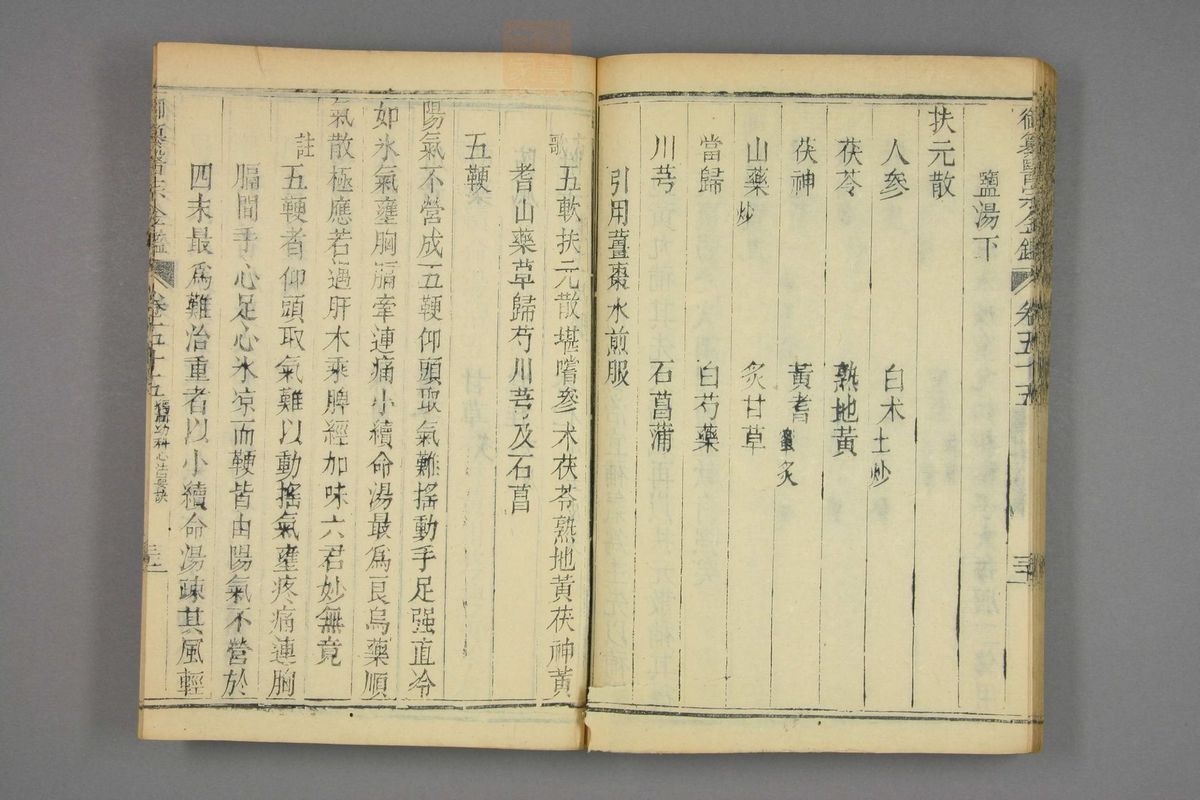 御纂醫宗金鑑 卷五十五
鹽湯下
扶元散
人參 白术土炒
茯苓 熟地黃
茯神 黃耆蜜炙
山藥炒 炙甘草
當歸 白芍藥
川芎 石菖蒲
引用薑棗水煎服
歌
五軟扶元散堪嚐參术茯苓熟地黃茯神黃
耆山藥草歸芍川芎及石菖
五鞕
陽氣不營成五鞕仰頭取氣難搖動手足强直冷
如氷氣壅胸膈牽連痛小續命湯最爲良烏藥順
氣散極應若遇肝木乘脾經加味六君妙無竟
註
五鞕者仰頭取氣難以動搖氣壅疼痛連胸
膈間手心足心氷凉而鞕皆由陽氣不營於
四末最爲難治重者以小續命湯疎其風輕
御纂醫宗金鑑 卷五十五 幼科心法要訣